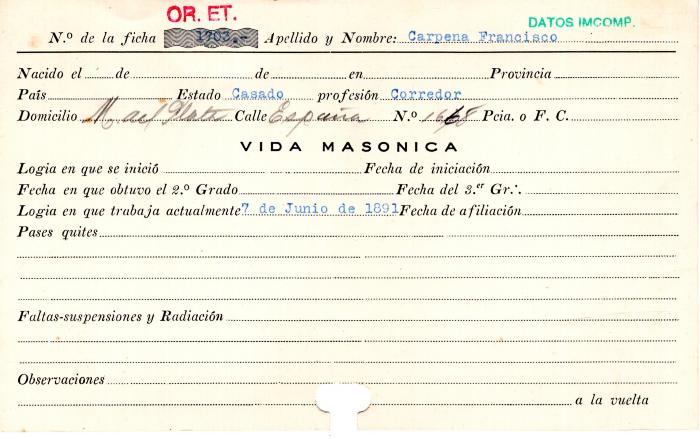 OR. ET.
DATOS IMCOMP.
N.º de la ficha 1703.- Apellido y Nombre: Carpena Francisco
Nacido el de de en Provincia
País Estado Casado profesión Corredor
Domicilio M del Plata Calle España N.º 1668 Pcia. o F. C.
VIDA MASONICA
Logia en que se inició Fecha de iniciación
Fecha en que obtuvo el 2.º Grado Fecha del 3.er Gr∴
Logia en que trabaja actualmente 7 de Junio de 1891 Fecha de afiliación
Pases quites
Faltas-suspensiones y Radiación
Observaciones
a la vuelta